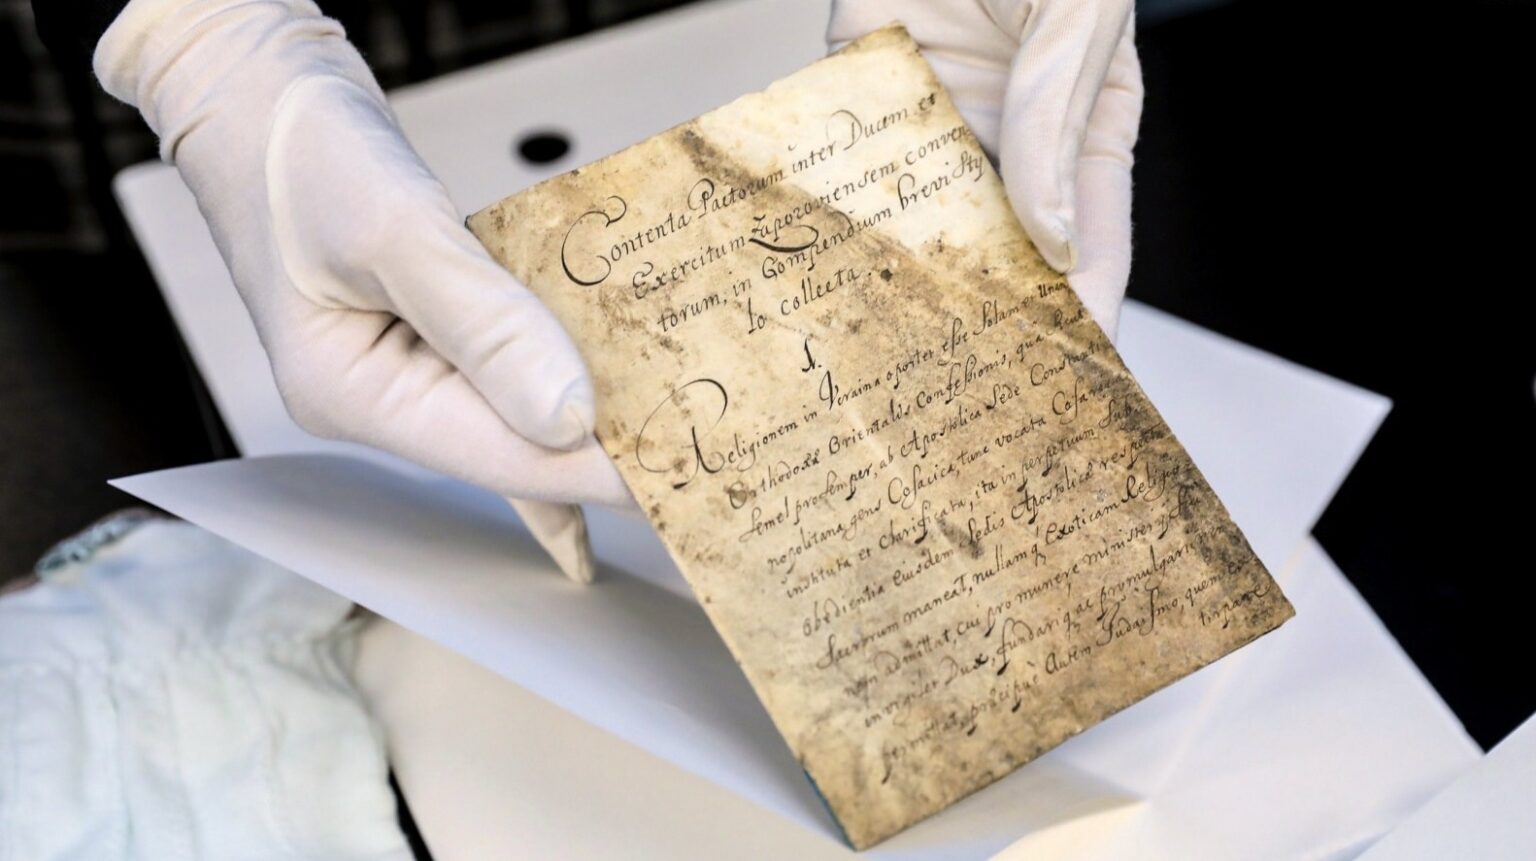 Contenta Pactorum inter Ducem et
Exercitum Zaporoviensem conven
torum, in Compendium brevi Sty
lo collecta.
1.
Religionem in Ucraina oportet esse Solam et Unam
Orthodoxæ Orientalis Confessionis, quæ sicut
semel pro semper, ab Apostolica Sede Constanti
nopolitana gens Cosacica, tunc vocata Cosar
instituta et clarificata, ita in perpetuum sub
obedientia eiusdem Sedis Apostolicæ res
Sacrorum maneat, nullamq Exoticam Religio
non admittat, cui pro munere ministerij
invigilet Dux, fundariq ac promulgari
permittat, præcipuè Autem Judaismo, quem
tirpare